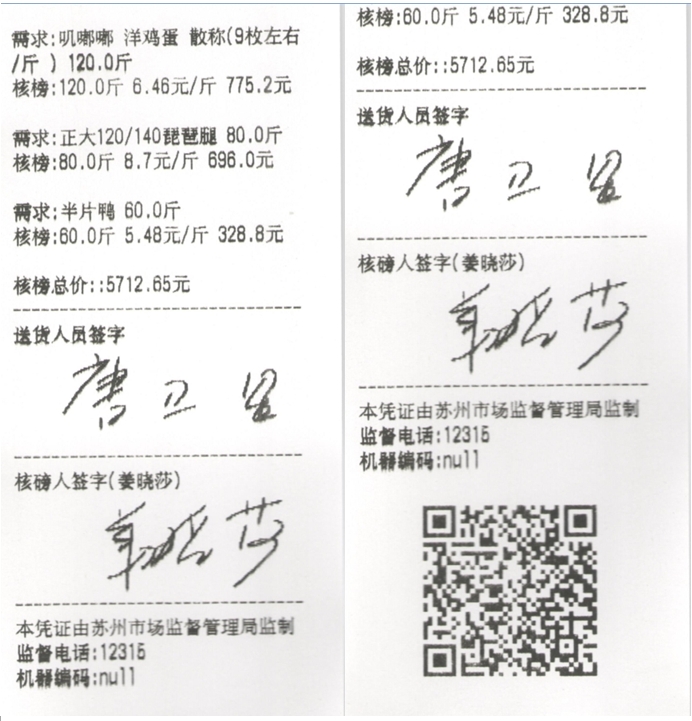 需求:叽嘟嘟 洋鸡蛋 散称(9枚左右
/斤 ) 120.0斤
核榜:120.0斤 6.46元/斤 775.2元
需求:正大120/140琵琶腿 80.0斤
核榜:80.0斤 8.7元/斤 696.0元
需求:半片鸭 60.0斤
核榜:60.0斤 5.48元/斤 328.8元
核榜总价::5712.65元
送货人员签字
唐卫
核磅人签字(姜晓莎)
姜晓莎
本凭证由苏州市场监督管理局监制
监督电话:12315
机器编码:null
核榜:60.0斤 5.48元/斤 328.8元
核榜总价::5712.65元
送货人员签字
唐卫
核磅人签字(姜晓莎)
姜晓莎
本凭证由苏州市场监督管理局监制
监督电话:12315
机器编码:null